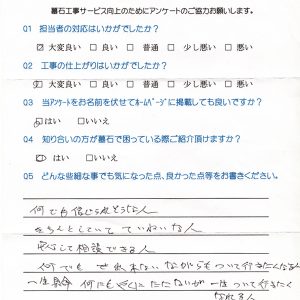 墓石工事サービス向上のためにアンケートのご協力お願いします。
01 担当者の対応はいかがでしたか？
☑ 大変良い □ 良い □ 普通 □ 少し悪い □ 悪い
02 工事の仕上がりはいかがでしたか？
☑ 大変良い □ 良い □ 普通 □ 少し悪い □ 悪い
03 当アンケートをお名前を伏せてホームページに掲載しても良いですか？
はい □ いいえ
04 知り合いの方が墓石で困っている際ご紹介頂けますか？
はい □ いいえ
05 どんな些細な事でも気になった点、良かった点等をお書きください。
何でも信じられそうな人
きちんとしていて ていねいな人
安心して相談できる人
何でも ながらもついて行きたくなる人
一生懸命 何にも
なれる人